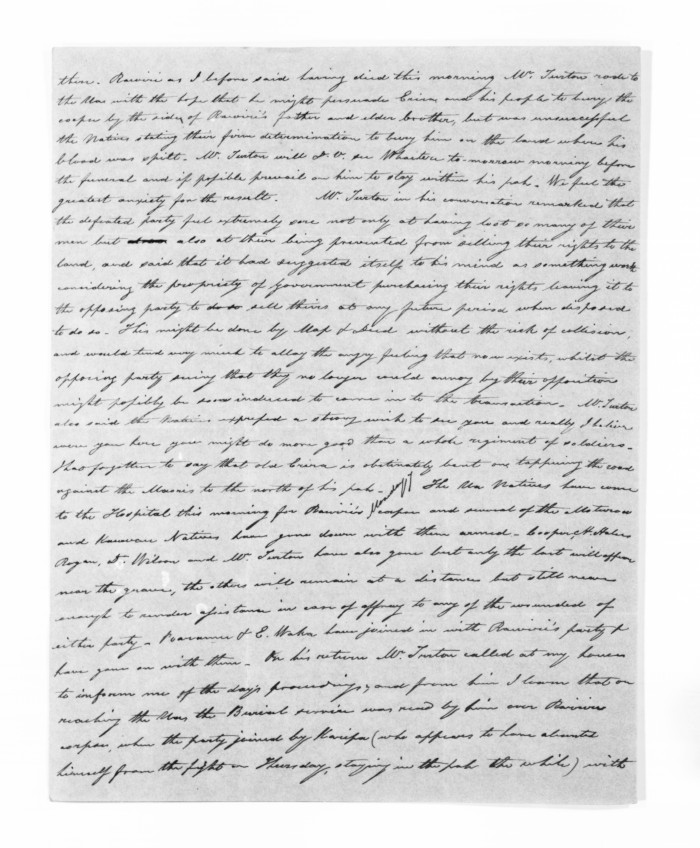 then. Rawiri as I before said having died this morning Mr. Turton rode to
the Ua with the hope that he might persuade Erira and his people to bury the
corpse by the side of Rawiri's father and elder brother, but was unsuccessful
the Natives stating their firm determination to bury him on the land where his
blood was spilt. Mr. Turton will D.V. see Whaitere to-morrow morning before
the funeral and if possible prevail on him to stay within his pah. We feel the
greatest anxiety for the result. Mr. Turton in his conversation remarked that
the defeated party feel extremely sore not only at having lost so many of their
men but also at their being prevented from selling their rights to the
land, and said that it had suggested itself to his mind as something worth
considering the propriety of Government purchasing their rights leaving it to
the opposing party to sell theirs at any future period when disposed
to do so. This might be done by Map & Deed without the risk of collision;
and would tend very much to allay the angry feeling that now exists, whilst the
opposing party seeing that they no longer could annoy by their opposition
might possibly be soon induced to come in to the transaction. Mr. Turton
also said the Natives expressed a strong wish to see you and really I believe
were you here you might do more good than a whole regiment of soldiers.
I had forgotten to say that old Erira is obstinately bent on tappuing the road
against the Maoris to the north of his pah. Monday The Ua Natives have come
to the Hospital this morning for Rawiri's corpse and several of the Moturoa
and Kawau Natives have gone down with them armed. Cooper, H. Halse
Rogan, Dr. Wilson and Mr. Turton have also gone but only the last will appear
near the grave, the others will remain at a distance but still near
enough to render assistance in case of affray to any of the wounded of
either party. & E. Waka have joined in with Rawiri's party &
have gone on with them. On his return Mr. Turton called at my house
to inform me of the day's proceedings, and from him I learn that on
reaching the Ua the Burial service was read by him over Rawiri's
corpse, when the party joined by Karipa (who appears to have absented
himself from the fight on Thursday, staying in the pah the while) with